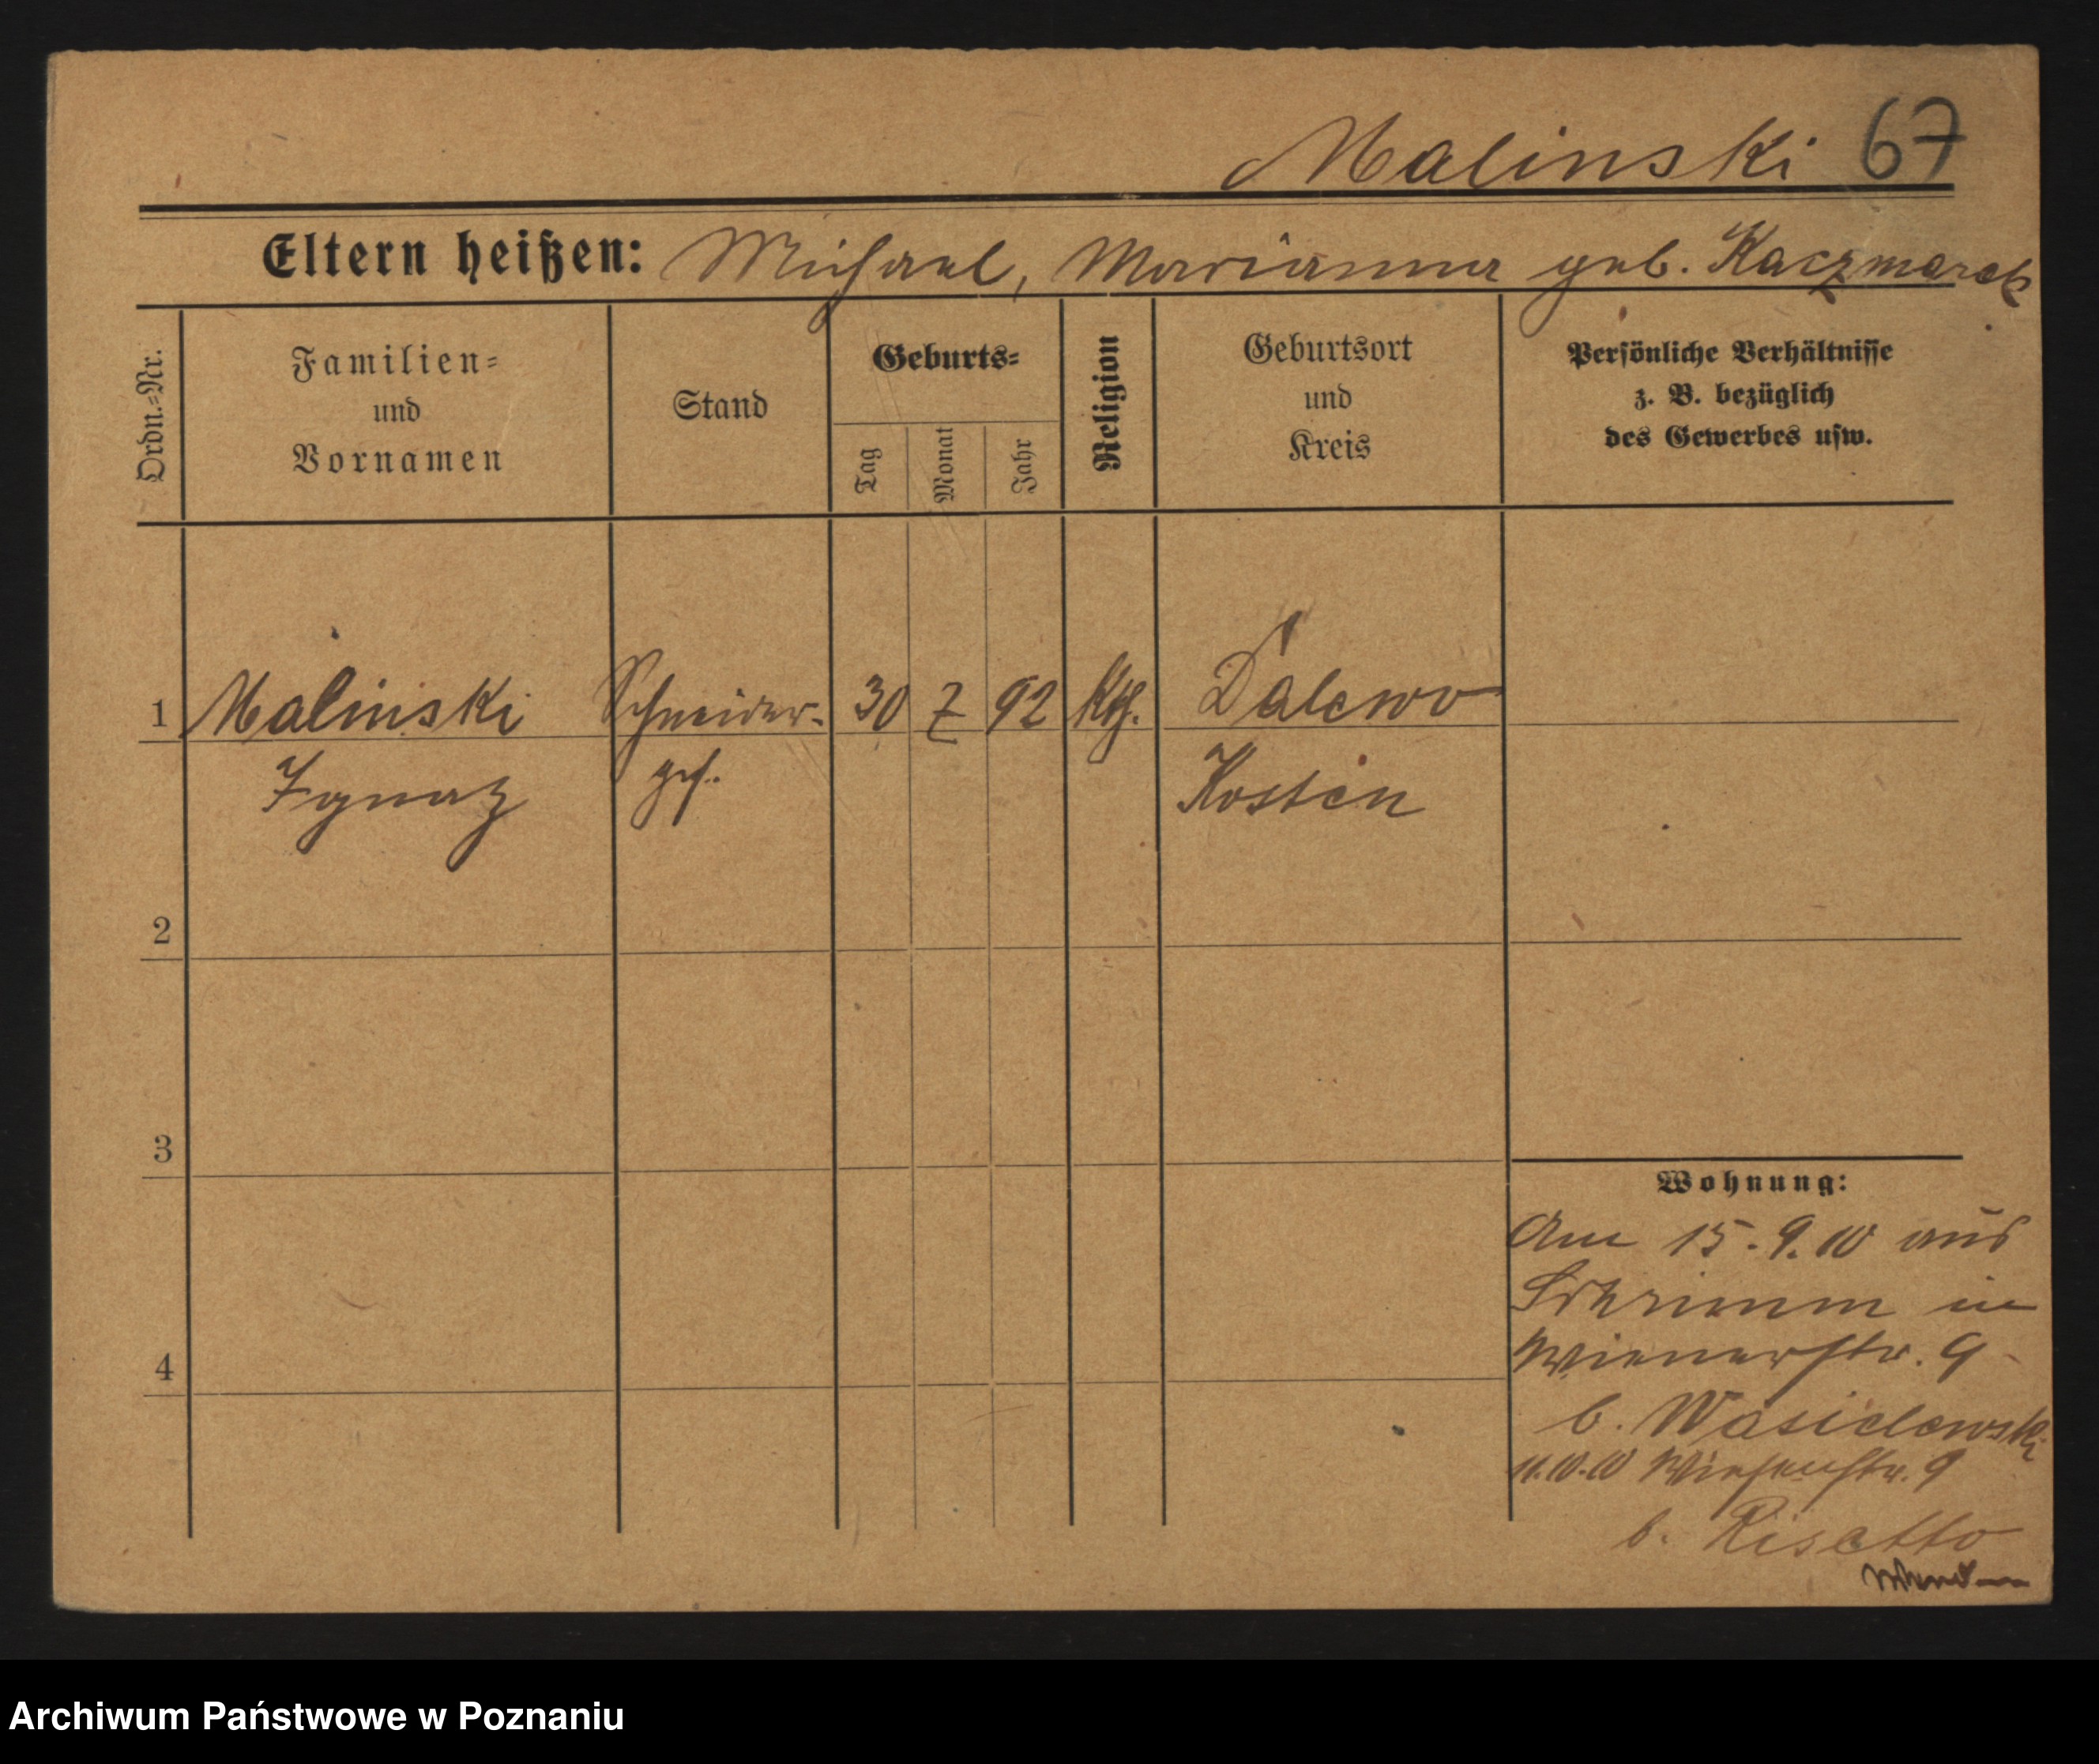 Malinski 67
Eltern heißen: Michael, Marianna geb. Kaczmarek
Ordn.=Nr.
Familien=
und
Vornamen
Stand
Geburts=
Tag
Monat
Jahr
Religion
Geburtsort
und
Kreis
Persönliche Verhältnisse
z. B. bezüglich
des Gewerbes usw.
1 Malinski Schneider- 30 7 92 Kth. Dalewo
Ignaz ges. Kosten
2
3
4
Wohnung:
Am 15.9.10 aus
Schrimm in
Wienerstr. 9
b. Wasielewski
11.10.10 Wiesenstr. 9
b. Risetto
Wenden
Archiwum Państwowe w Poznaniu